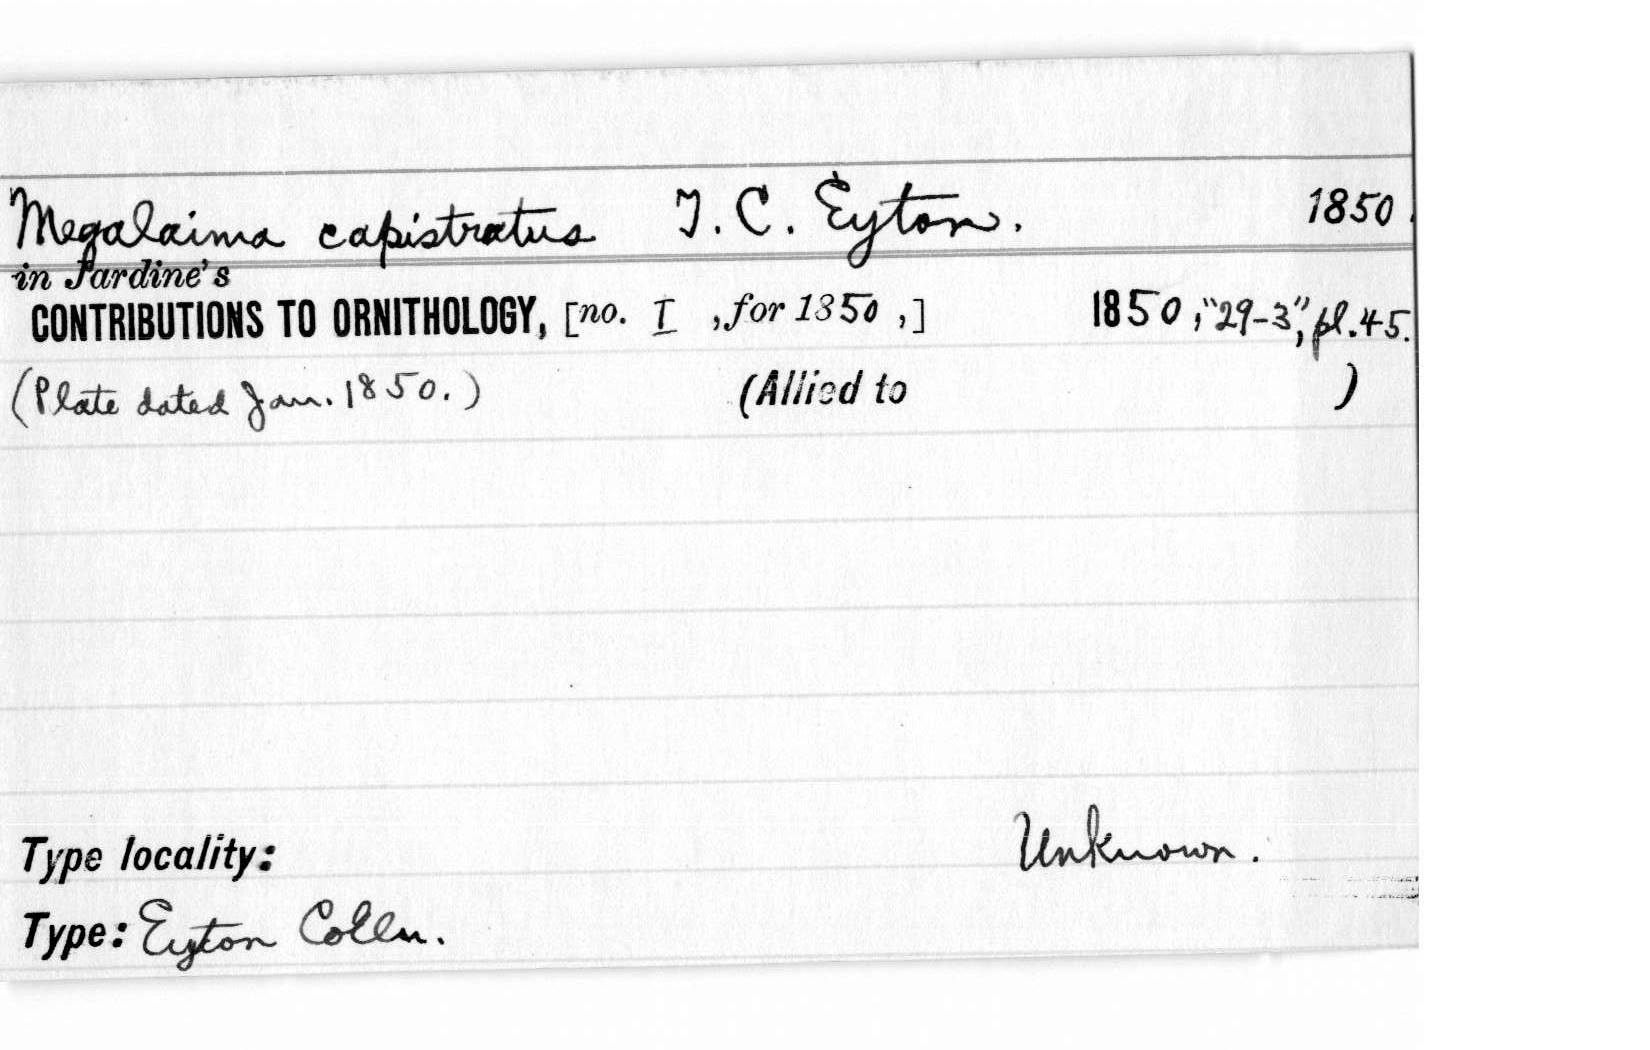 Megalaima capistratus T. C. Eyton. 1850.
in Jardine's
CONTRIBUTIONS TO ORNITHOLOGY, [no. I , for 1850 ,] 1850, "29-3", pl. 45.
(Plate dated Jan. 1850.) (Allied to )
Type locality: Unknown.
Type: Eyton Colln.